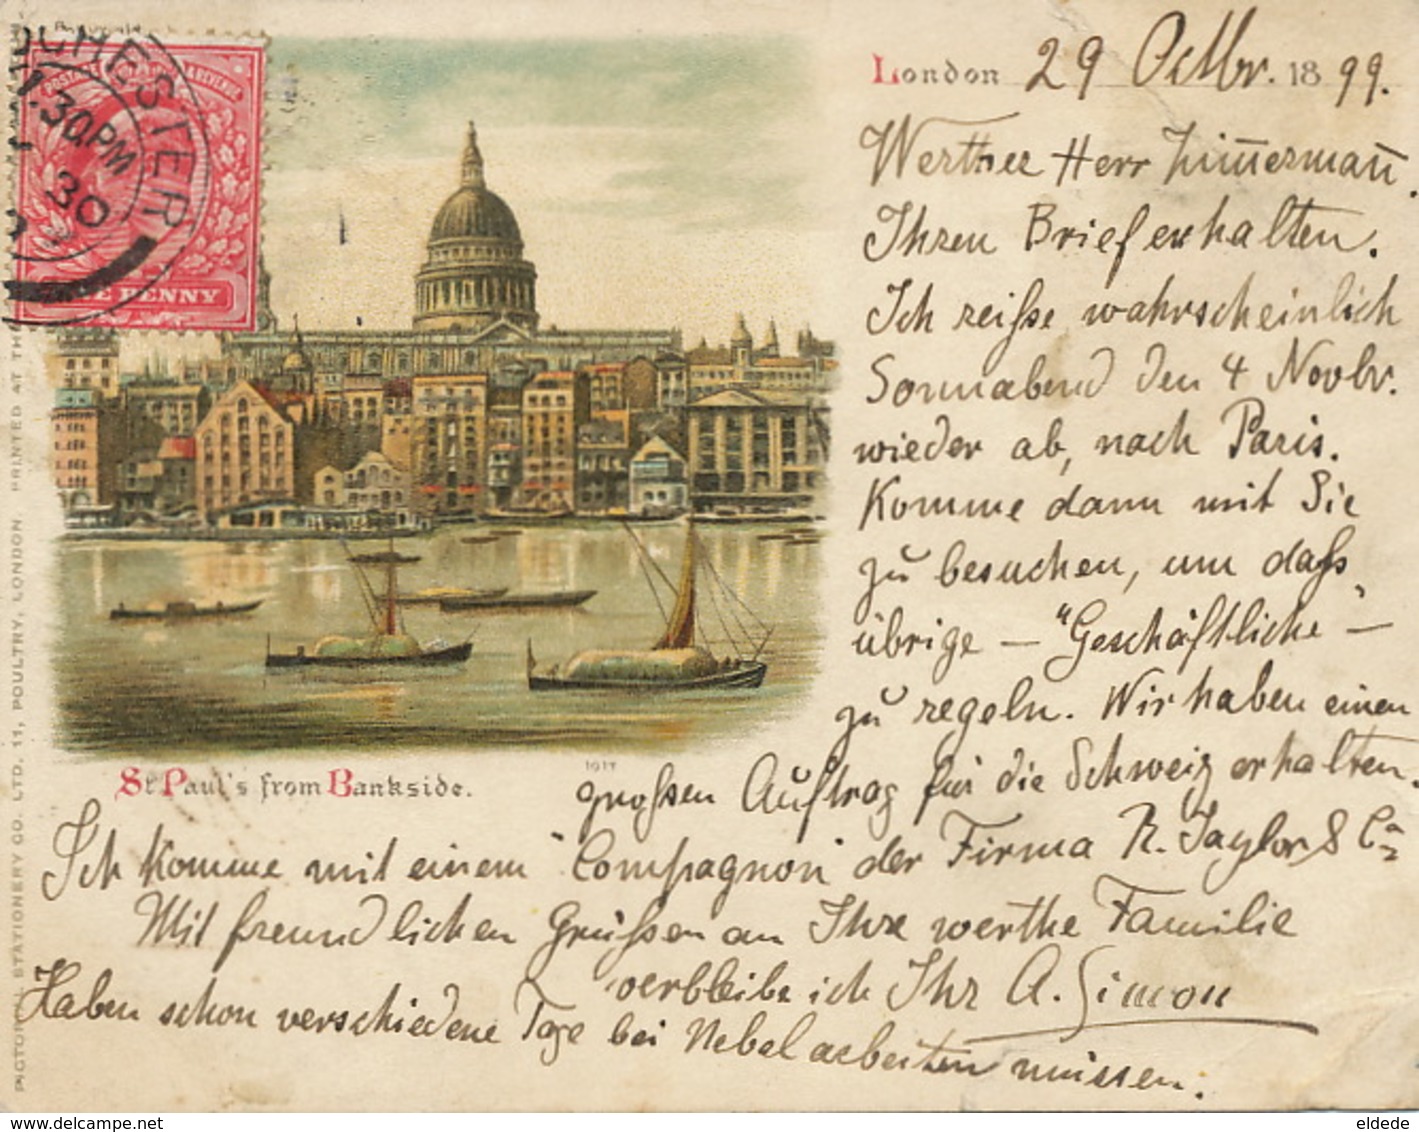 London 29 Octbr. 1899.
Werther Herr Zimmermann.
Ihren Brief erhalten.
Ich reiße wahrscheinlich
Sonnabend den 4 Novbr.
wieder ab, nach Paris.
Komme dann mit Sie
zu besuchen, um daß
übrige — "Geschäftliche —
zu regeln. Wir haben einen
großen Auftrag für die Schweiz erhalten.
Ich komme mit einem "Compagnon" der Firma R. Taylor & Co
Mit freundlichen Grüßen an Ihre werthe Familie
verbleibe ich Ihr A. Simon
Haben schon verschiedene Tage bei Nebel arbeiten müssen.
St. Paul's from Bankside.
1017
CHESTER
1.30PM
30
POSTAGE REVENUE
ONE PENNY
PICTORIAL STATIONERY CO. LTD. 11, POULTRY, LONDON. PRINTED AT THE
eldede